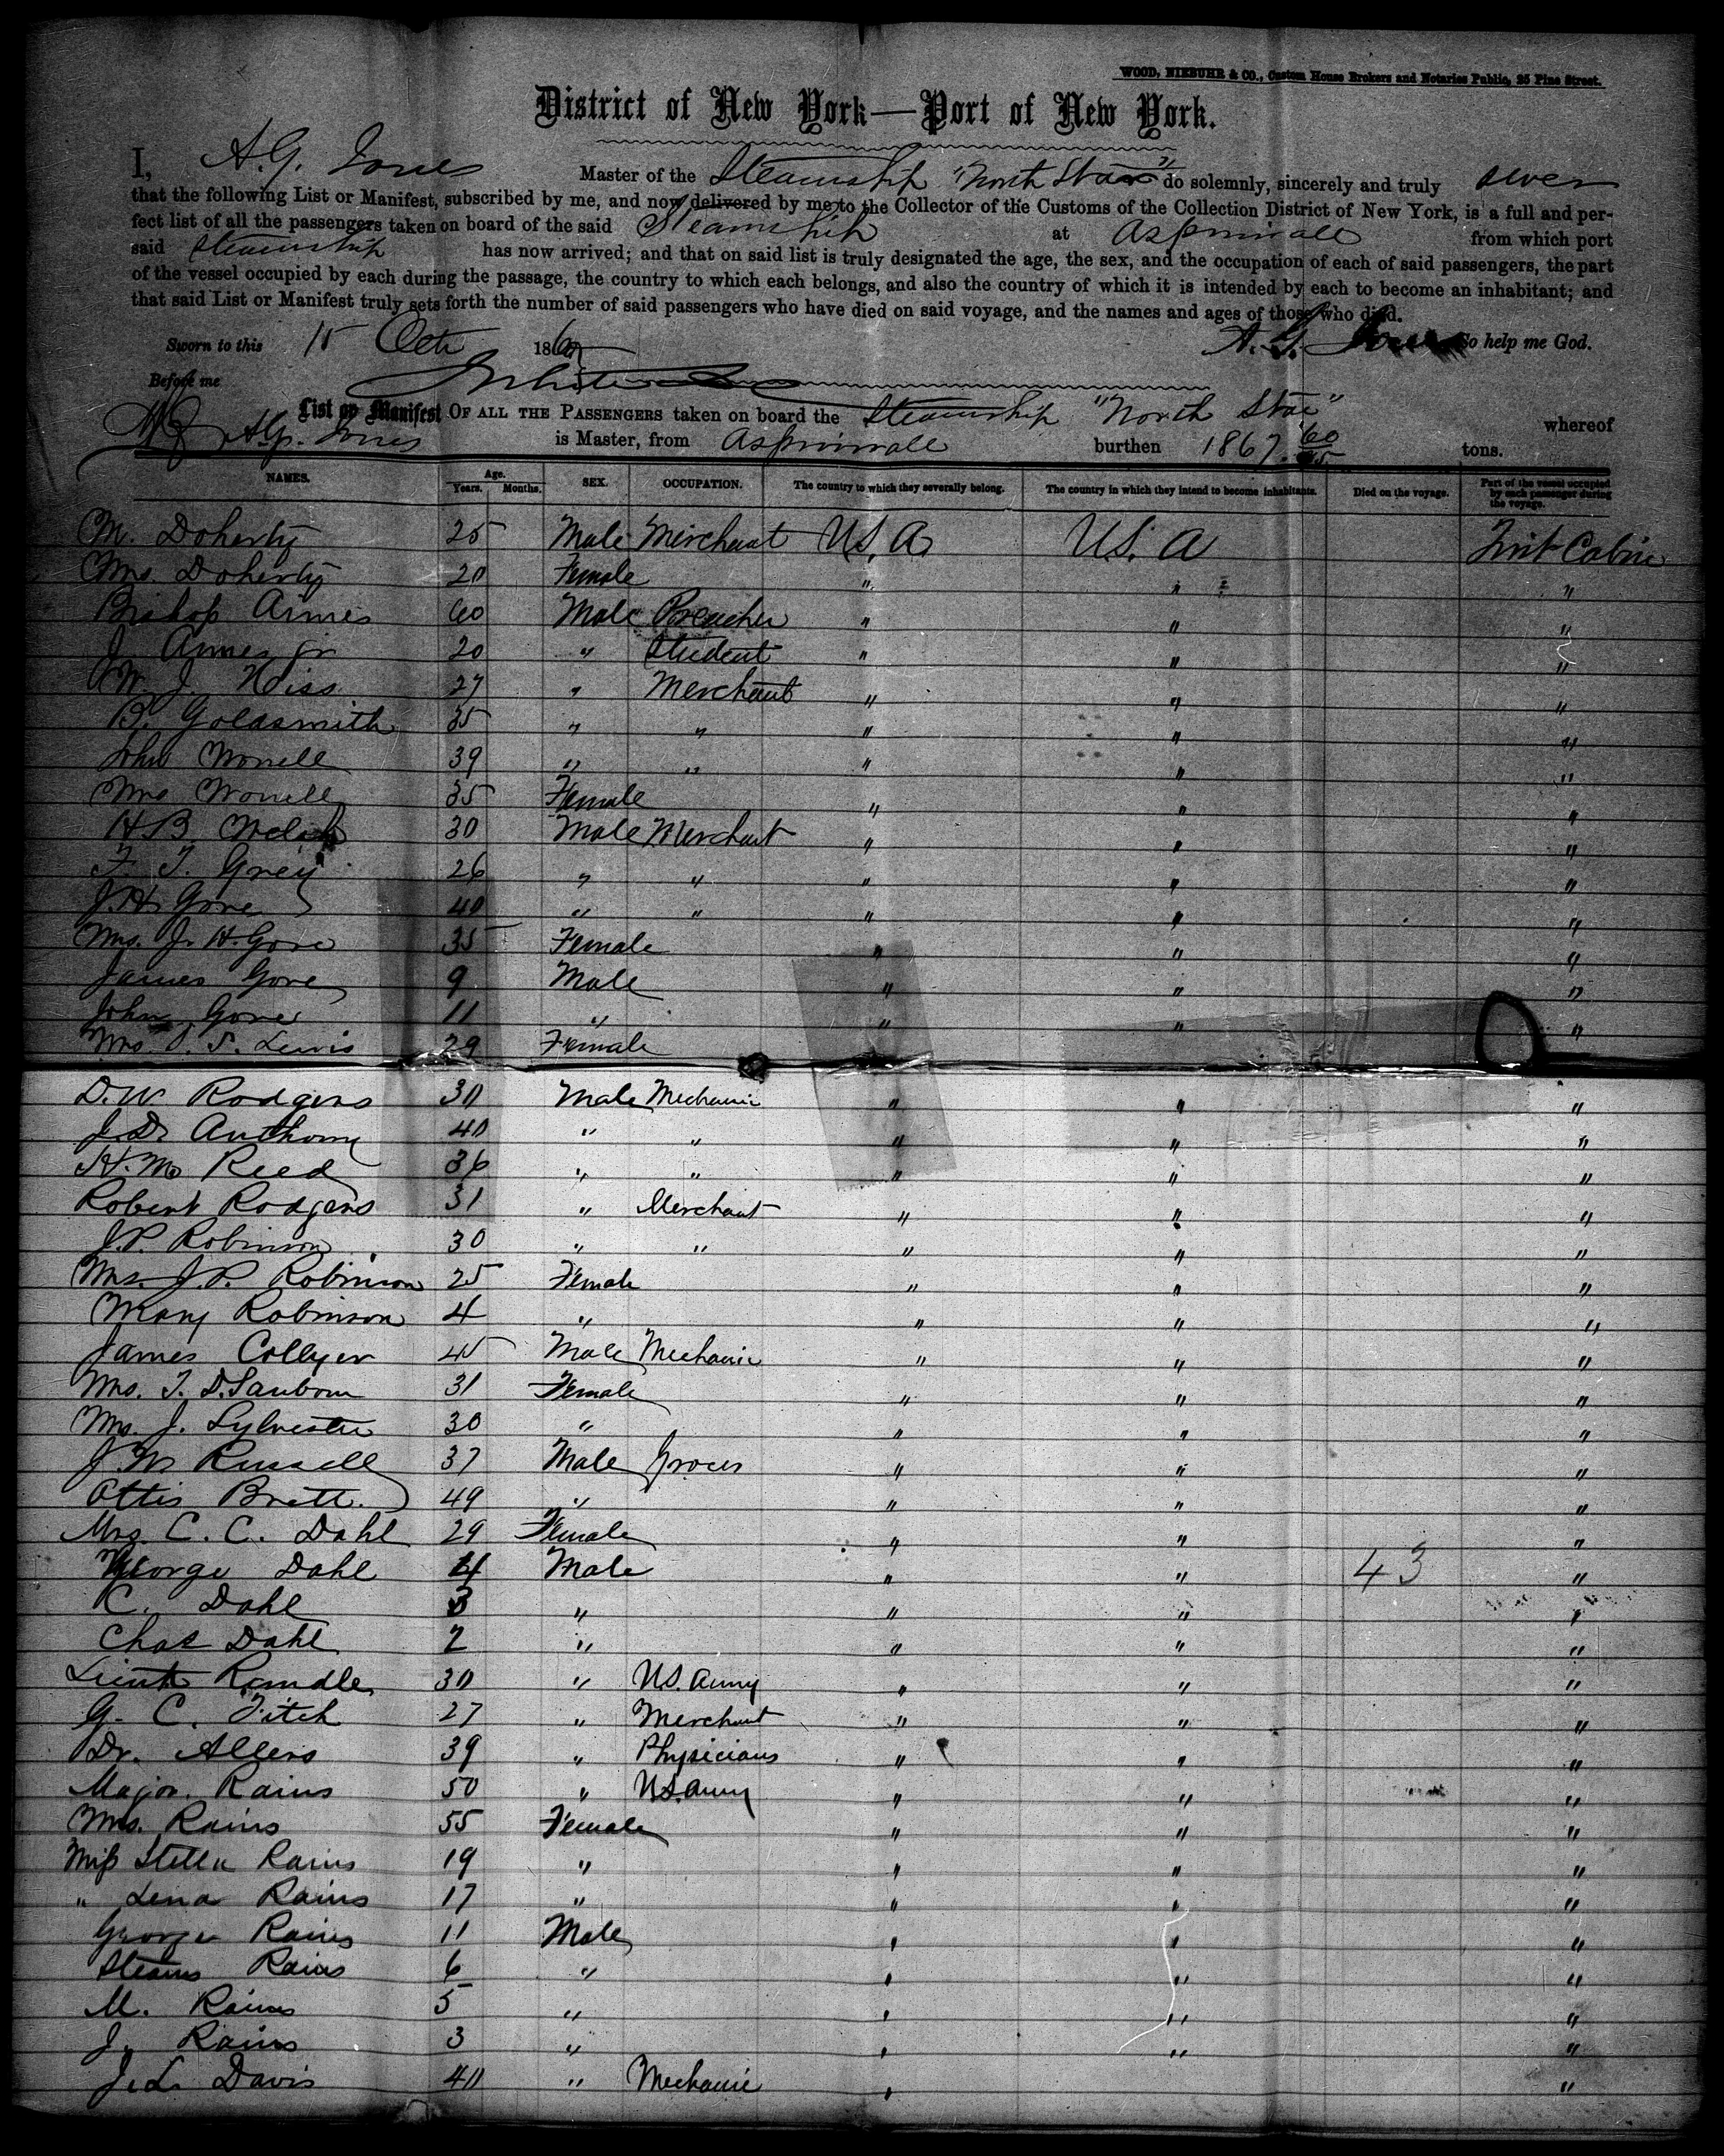 WOOD, NIEBUHR & CO., Custom House Brokers and Notaries Public, 25 Pine Street.
District of New York—Port of New York.
I, A.G. Jones Master of the Steamship "North Star" do solemnly, sincerely and truly swear
that the following List or Manifest, subscribed by me, and now delivered by me to the Collector of the Customs of the Collection District of New York, is a full and per-
fect list of all the passengers taken on board of the said Steamship at Aspinwall from which port
said Steamship has now arrived; and that on said list is truly designated the age, the sex, and the occupation of each of said passengers, the part
of the vessel occupied by each during the passage, the country to which each belongs, and also the country of which it is intended by each to become an inhabitant; and
that said List or Manifest truly sets forth the number of said passengers who have died on said voyage, and the names and ages of those who died.
Sworn to this 15 Oct 186 A. G. Jones So help me God.
Before me
List or Manifest OF ALL THE PASSENGERS taken on board the Steamship "North Star" whereof
A.G. Jones is Master, from Aspinwall burthen 1867 60/95 tons.
NAMES. Age. Years. Months. SEX. OCCUPATION. The country to which they severally belong. The country in which they intend to become inhabitants. Died on the voyage. Part of the vessel occupied by each passenger during the voyage.
M. Doherty 25 Male Merchant U.S. A U.S. A First Cabin
Mrs. Doherty 20 Female " " "
Bishop Ames 60 Male Preacher " " "
J. Ames jr 20 " Student " " "
W. J. Hiss 27 " Merchant " " "
B. Goldsmith 35 " " " " "
John Worrell 39 " " " " "
Mrs Worrell 35 Female " " "
H B Welch 30 Male Merchant " " "
F. T. Grey 26 " " " " "
J. H. Gove 40 " " " " "
Mrs. J. H. Gove 35 Female " " "
James Gove 9 Male " " "
John Gove 11 " " " "
Mrs S. Lewis 29 Female "
D. W Rodgers 30 Male Mechanic " " "
J. D. Anthony 40 " " " " "
H. M. Reed 36 " " " " "
Robert Rodgers 31 " Merchant " " "
J. P. Robinson 30 " " " " "
Mrs. J. P. Robinson 25 Female " " "
Mary Robinson 4 " " " "
James Collyer 45 Male Mechanic " " "
Mrs. T. D. Sanborn 31 Female " " "
Mrs. J. Sylvester 30 " " " "
J. W Russell 37 Male Grocer " " "
Ottis Brett. 49 " " " "
Mrs. C. C. Dahl 29 Female " " "
George Dahl 4 Male " " 43 "
C. Dahl 3 " " " "
Chas Dahl 2 " " " "
Lieut Randle 30 " U.S. Army " " "
G. C. Fitch 27 " Merchant " " "
Dr. Allers 39 " Physicians " " "
Major. Rains 50 " U.S. Army " " "
Mrs. Rains 55 Female " " "
Miss Stella Rains 19 " " " "
" Lena Rains 17 " " " "
George Rains 11 Male " " "
Steams Rains 6 " " " "
M. Rains 5 " " " "
J. Rains 3 " " " "
J. L. Davis 40 " Mechanic " "